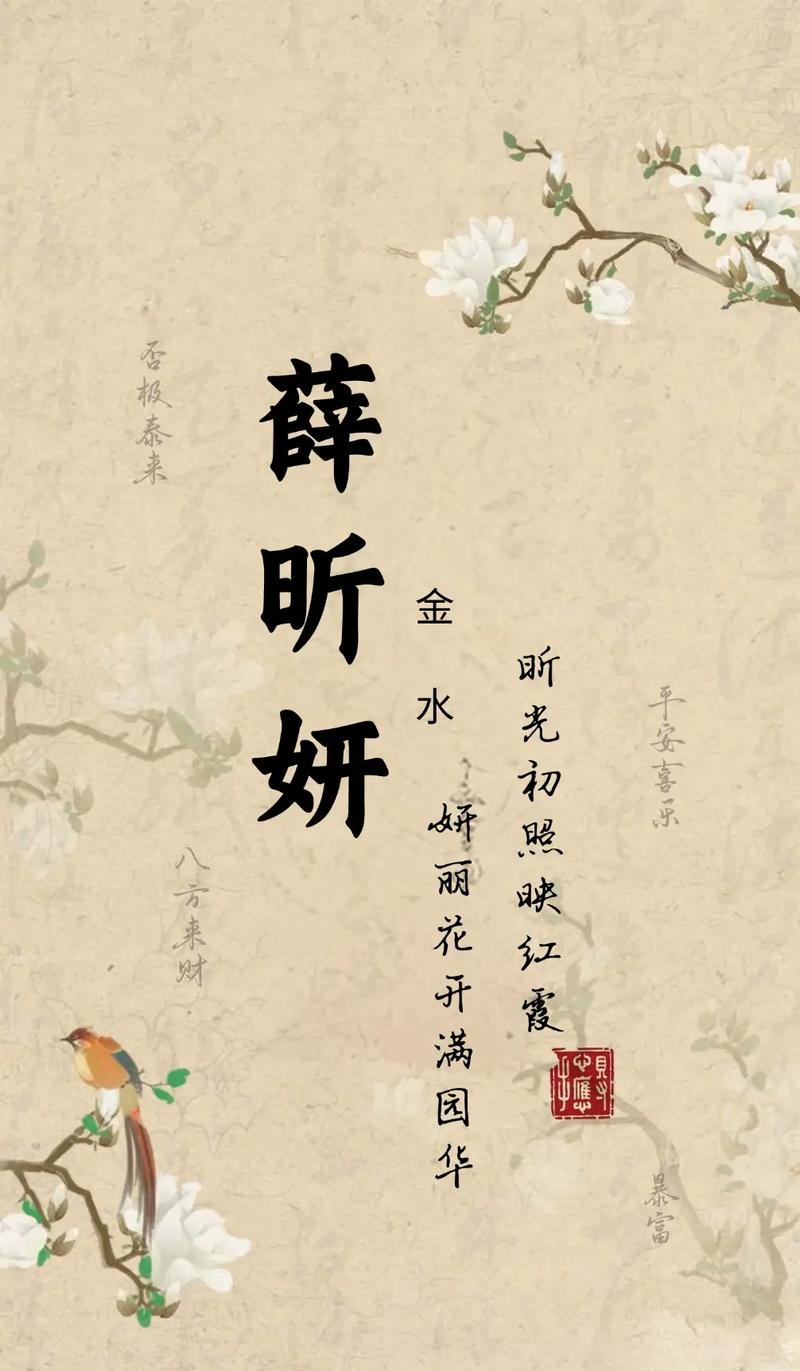 薛昕妍
金水
昕光初照映红霞
妍丽花开满园华
否极泰来
平安喜乐
八方来财
暴富